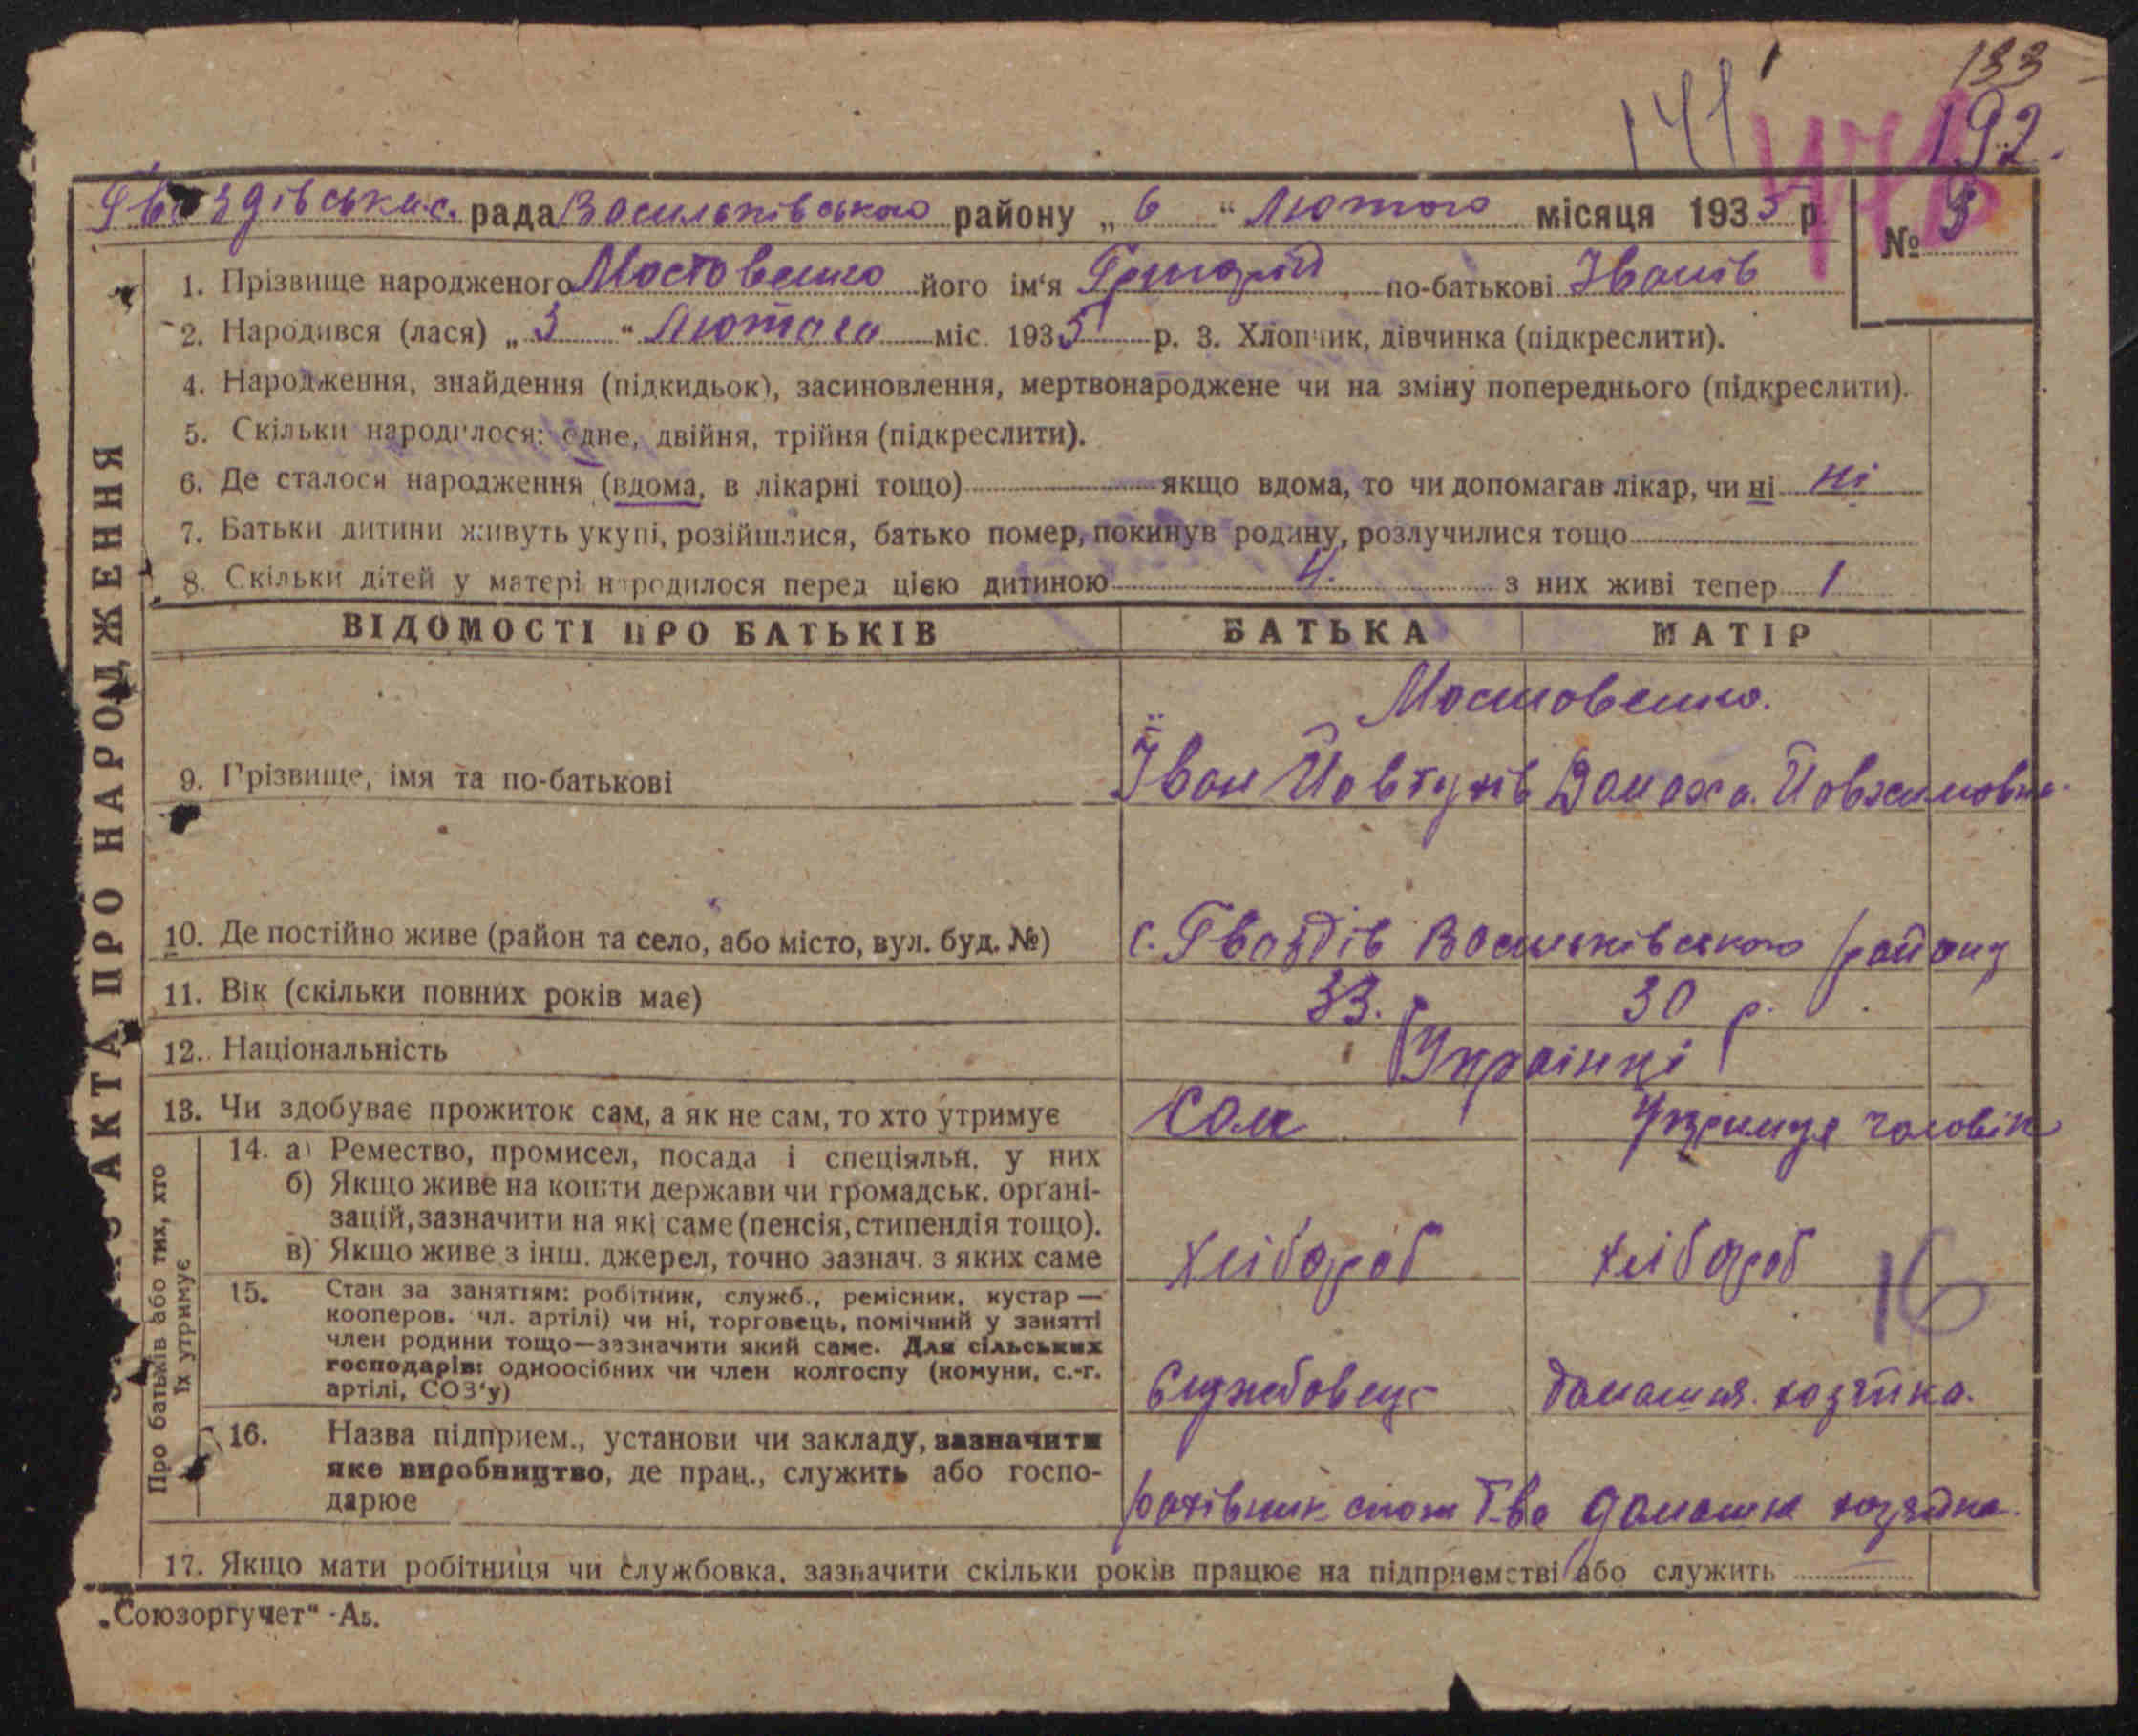 133
141 192.
478
Гвоздівська с. рада Васильківського району „6“ Лютого місяця 1935 р. № 3
1. Прізвище народженого Мостовенко його ім'я Григорій по-батькові Іванів
2. Народився (лася) „3“ Лютого міс. 1935 р. 3. Хлопчик, дівчинка (підкреслити).
4. Народження, знайдення (підкидьок), засиновлення, мертвонароджене чи на зміну попереднього (підкреслити).
5. Скільки народилося: одне, двійня, трійня (підкреслити).
6. Де сталося народження (вдома, в лікарні тощо) якщо вдома, то чи допомагав лікар, чи ні ні
7. Батьки дитини живуть укупі, розійшлися, батько помер, покинув родину, розлучилися тощо
8. Скільки дітей у матері народилося перед цією дитиною 4. з них живі тепер 1
ВІДОМОСТІ ПРО БАТЬКІВ БАТЬКА МАТІР
Мостовенко.
9. Прізвище, імя та по-батькові Іван Йовтухів Домаха Йовхимовна
10. Де постійно живе (район та село, або місто, вул. буд. №) с. Гвоздів Васильківського району
11. Вік (скільки повних років має) 33. р 30 р.
12. Національність Українці
13. Чи здобуває прожиток сам, а як не сам, то хто утримує Сам Утримує чоловік
14. а) Ремество, промисел, посада і спеціяльн. у них
б) Якщо живе на кошти держави чи громадськ. органі-
зацій, зазначити на які саме (пенсія, стипендія тощо).
в) Якщо живе з інш. джерел, точно зазнач. з яких саме хлібороб хлібороб 16
15. Стан за заняттям: робітник, служб., ремісник, кустар —
кооперов. чл. артілі) чи ні, торговець, помічний у занятті
член родини тощо—зазначити який саме. Для сільських
господарів: одноосібних чи член колгоспу (комуни, с.-г.
артілі, СОЗ'у) Службовець домашня хозяйка.
16. Назва підприєм., установи чи закладу, зазначити
яке виробництво, де прац., служить або госпо-
дарюе рахівник спож Т-ва домашня хозяйка.
17. Якщо мати робітниця чи службовка, зазначити скільки років працює на підприємстві або служить
„Союзоргучет“ -А5.
АКТА ПРО НАРОДЖЕННЯ
Про батьків або тих, хто
їх утримує